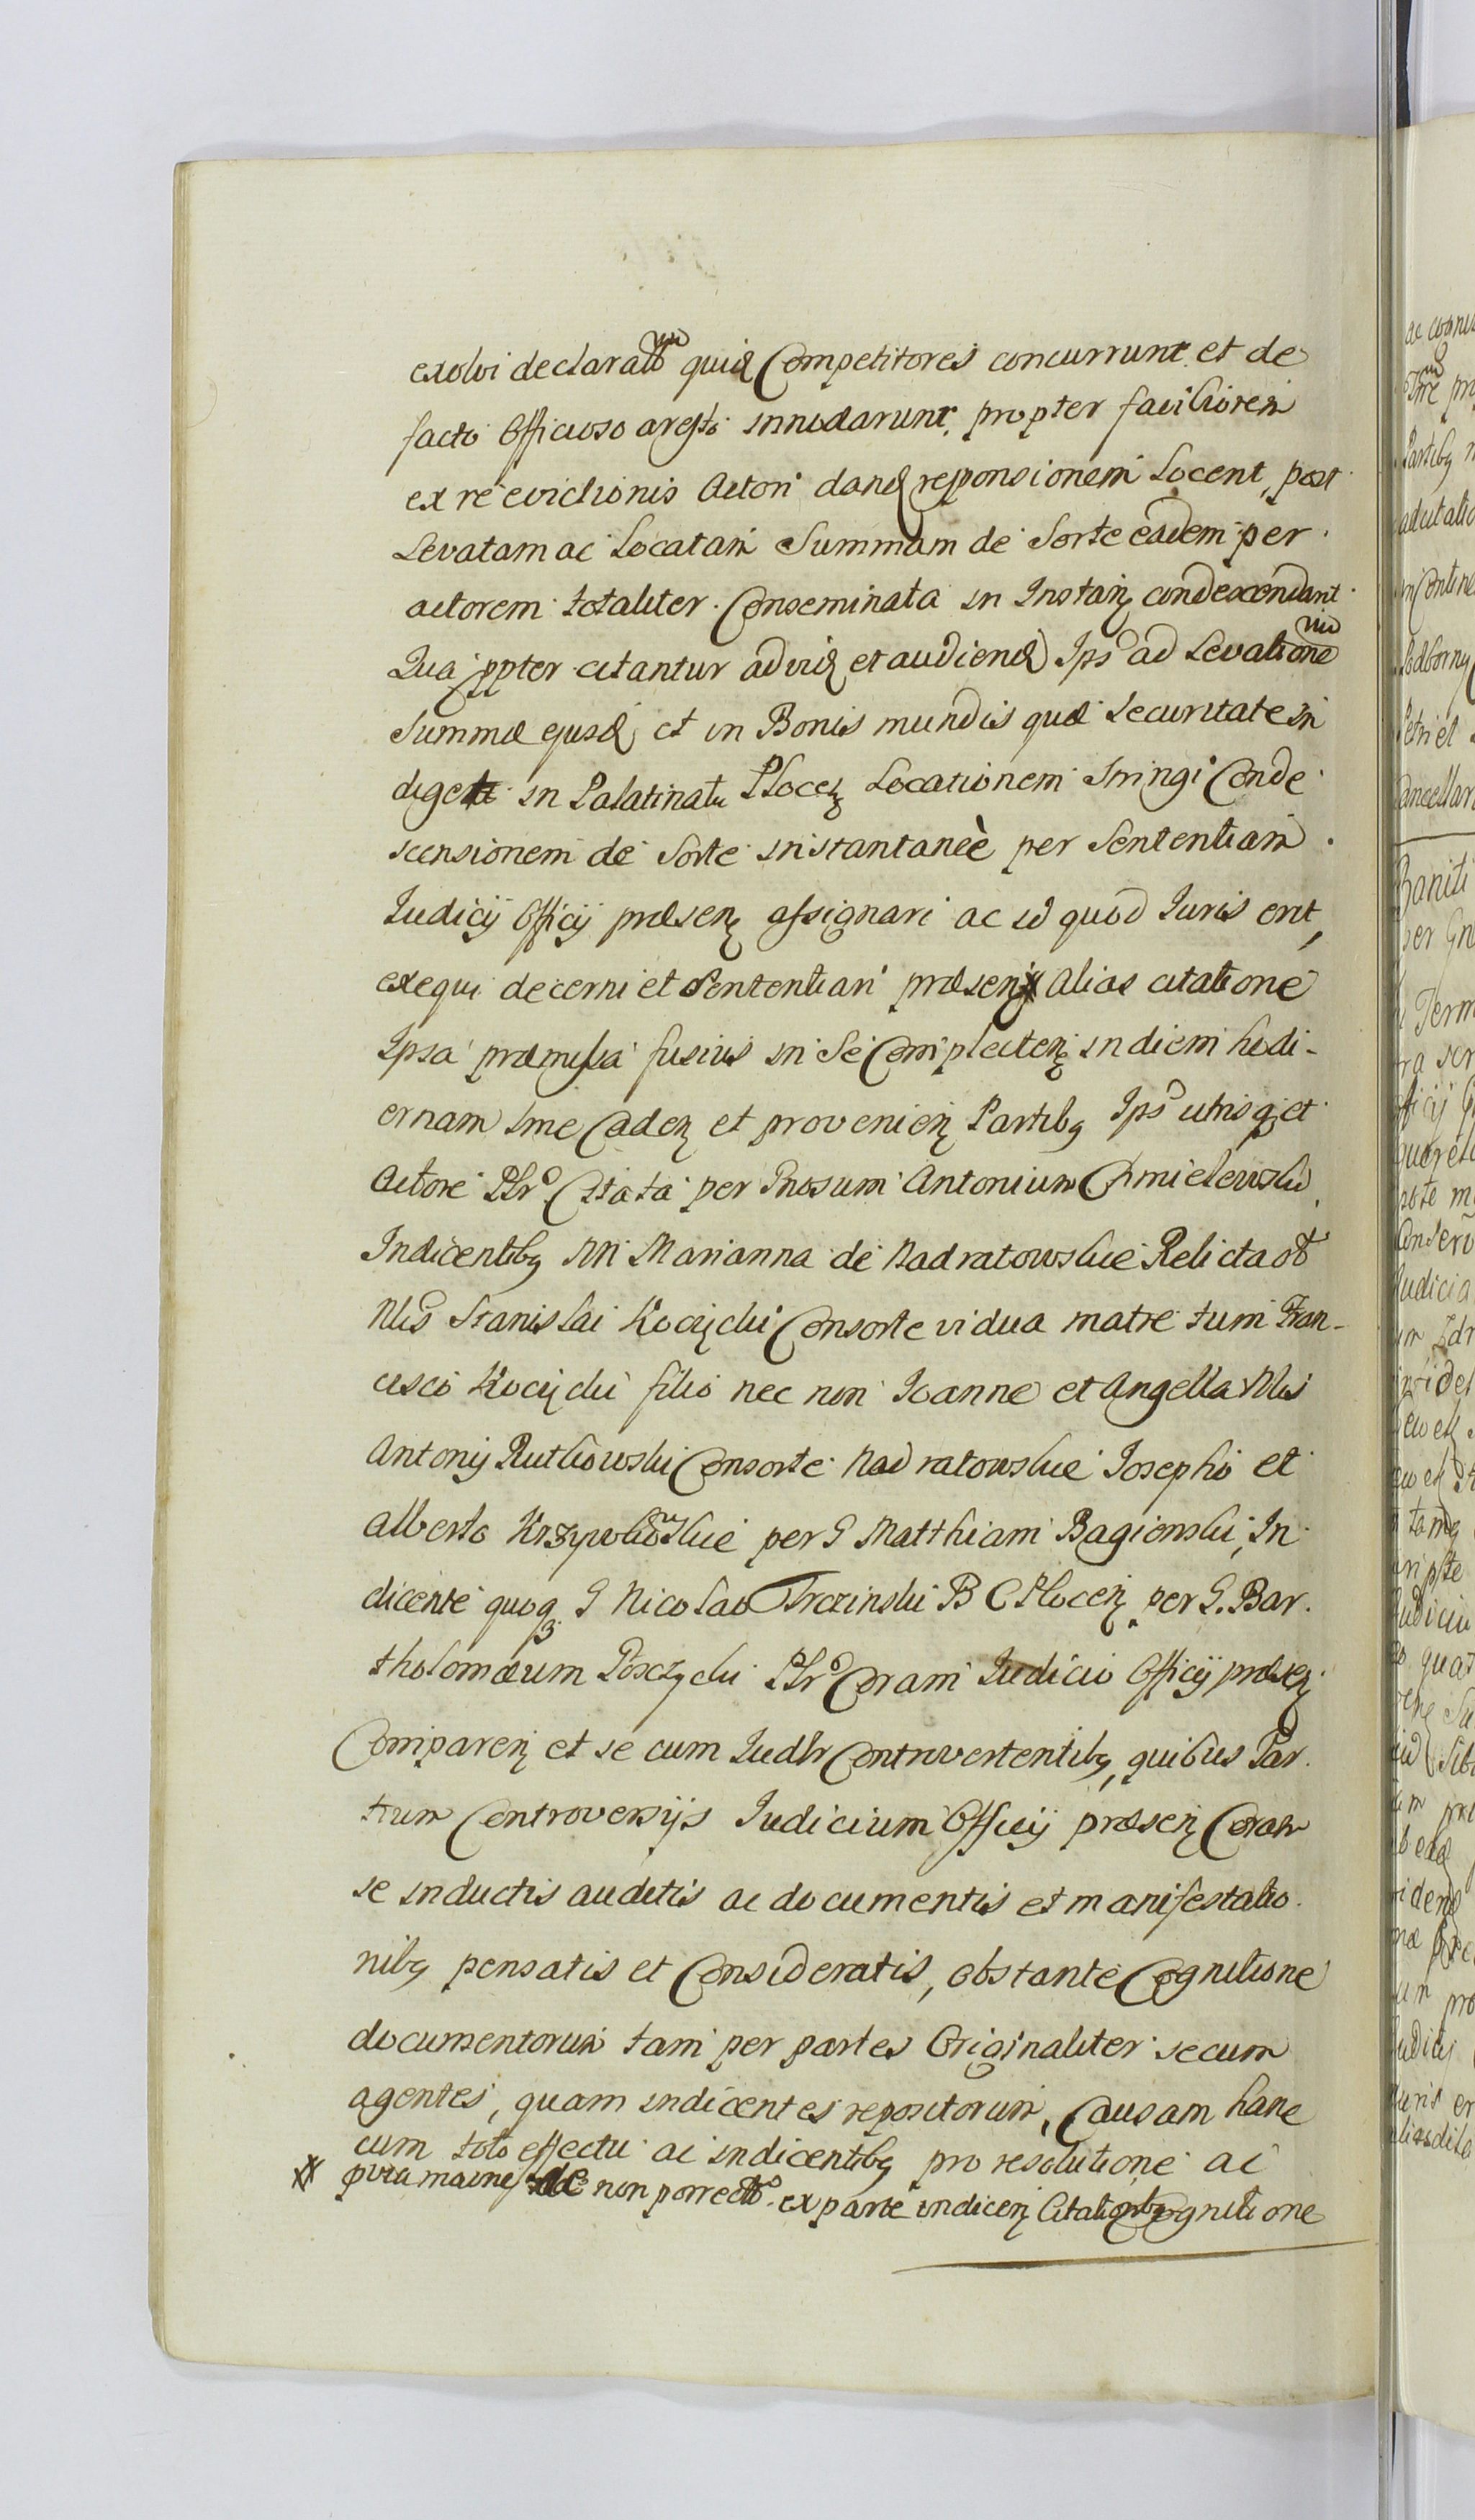 exolvi declarato quid Competitores concurrunt et de
facto Officioso aresto innodarunt, propter faciliorem
ex re evictionis Actori dand responsionem Locent, post
Levatam ac Locatam Summam de Sorte eadem per
actorem totaliter Conseminata in Instan condescendant
Qua ppter citantur ad vid et audiend Ips ad Levatione
Summæ ejusd et in Bonis mundis quæ securitate in
digent in Palatinatu Plocen Locationem Stringi Conde
scensionem de Sorte instantanèe per Sententiam
Judicij Officij præsen assignari ac id quod Iuris erit,
exequi decerni et Sententiari præsen Alias citatione
Ipsa præmissa fusius in Se Complecten in diem hodi-
ernam sine Caden et provenien Partibq Ips utrisq et
Actore Plr Citata per Gnosum Antonium Chmielewski
Indicentibq NN Marianna de Nadratowskie Relicta ol
Nlis Stanislai Kocięcki Consorte vidua matre tum Fran-
cisco Kocięcki filio nec non Joanne et Angella Nlis
Antonij Rutkowski Consorte Nadratowskie Josepho et
Alberto per G Matthiam Bagienski, In
dicente quoq G Nicolao Trczinski B C Plocen per G. Bar.
tholomæum Poszycki Plr Coram Judicio Officij præsen
Comparen et se cum Judlr Controvertentibq, quibus Par.
tium Controversijs Judicium Officij præsen Coram
se inductis auditis ac documentis et manifestatio.
nibq pensatis et Consideratis, obstante Cognitione
documentorum tam per partes Originaliter secum
agentes, quam indicentes repositorum, Causam hanc
cum toto effectu ac indicentibq pro resolutione ac
non porrecto ex parte indicen Citationibq Cognitione